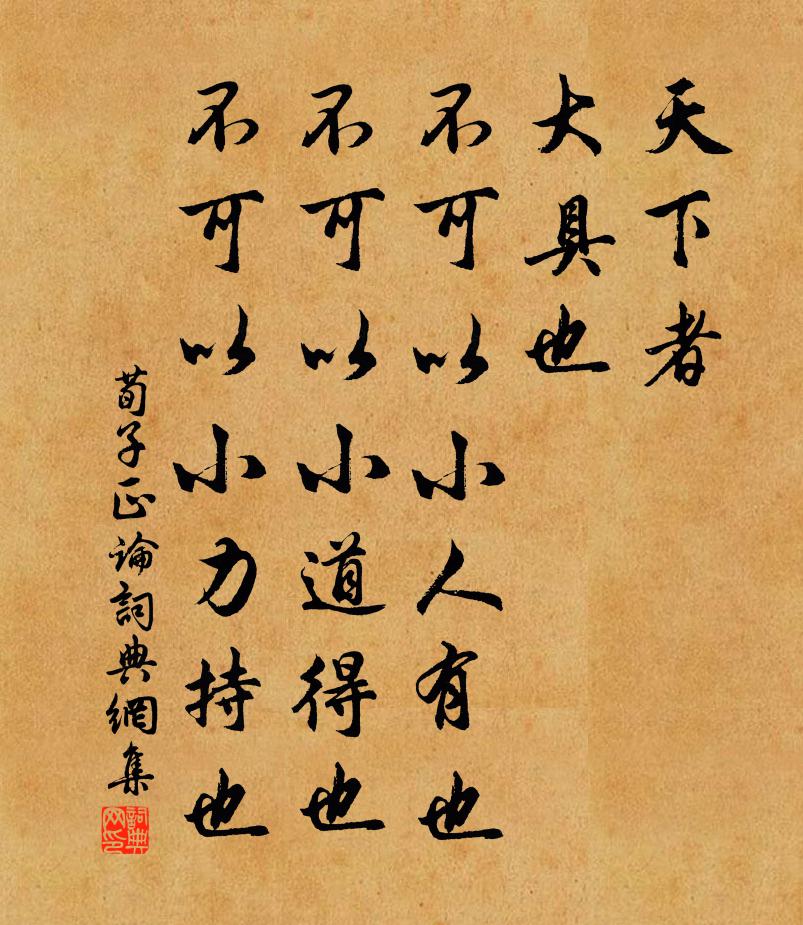 天下者
大具也
不可以小人有也
不可以小道得也
不可以小力持也
荀子正論詞典網集
詞典网印